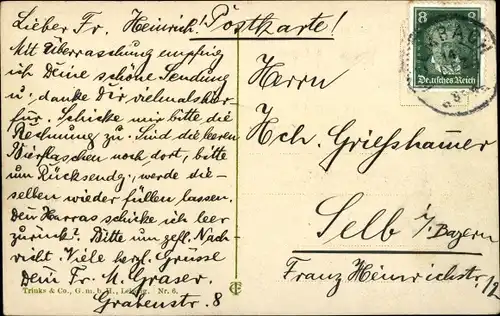 Lieber Fr. Heinrich! Postkarte!
Mit Überraschung empfing
ich Deine schöne Sendung
u. danke Dir vielmals hier
für. Schicke mir bitte die
Rechnung zu. Sind die leeren
Bierflaschen noch dort, bitte
um Rücksendg, werde die-
selben wieder füllen lassen.
Den Harras schicke ich leer
zurück? Bitte um gefl. Nach
richt. Viele herzl. Grüsse
Dein Fr. M. Graser.
Grabenstr. 8
Trinks & Co., G. m. b. H., Leipzig. Nr. 6.
8 8
Deutsches Reich
Herrn
Hch. Griefshamer
Selb i/Bayern
Franz Heinrichstr. 1/2